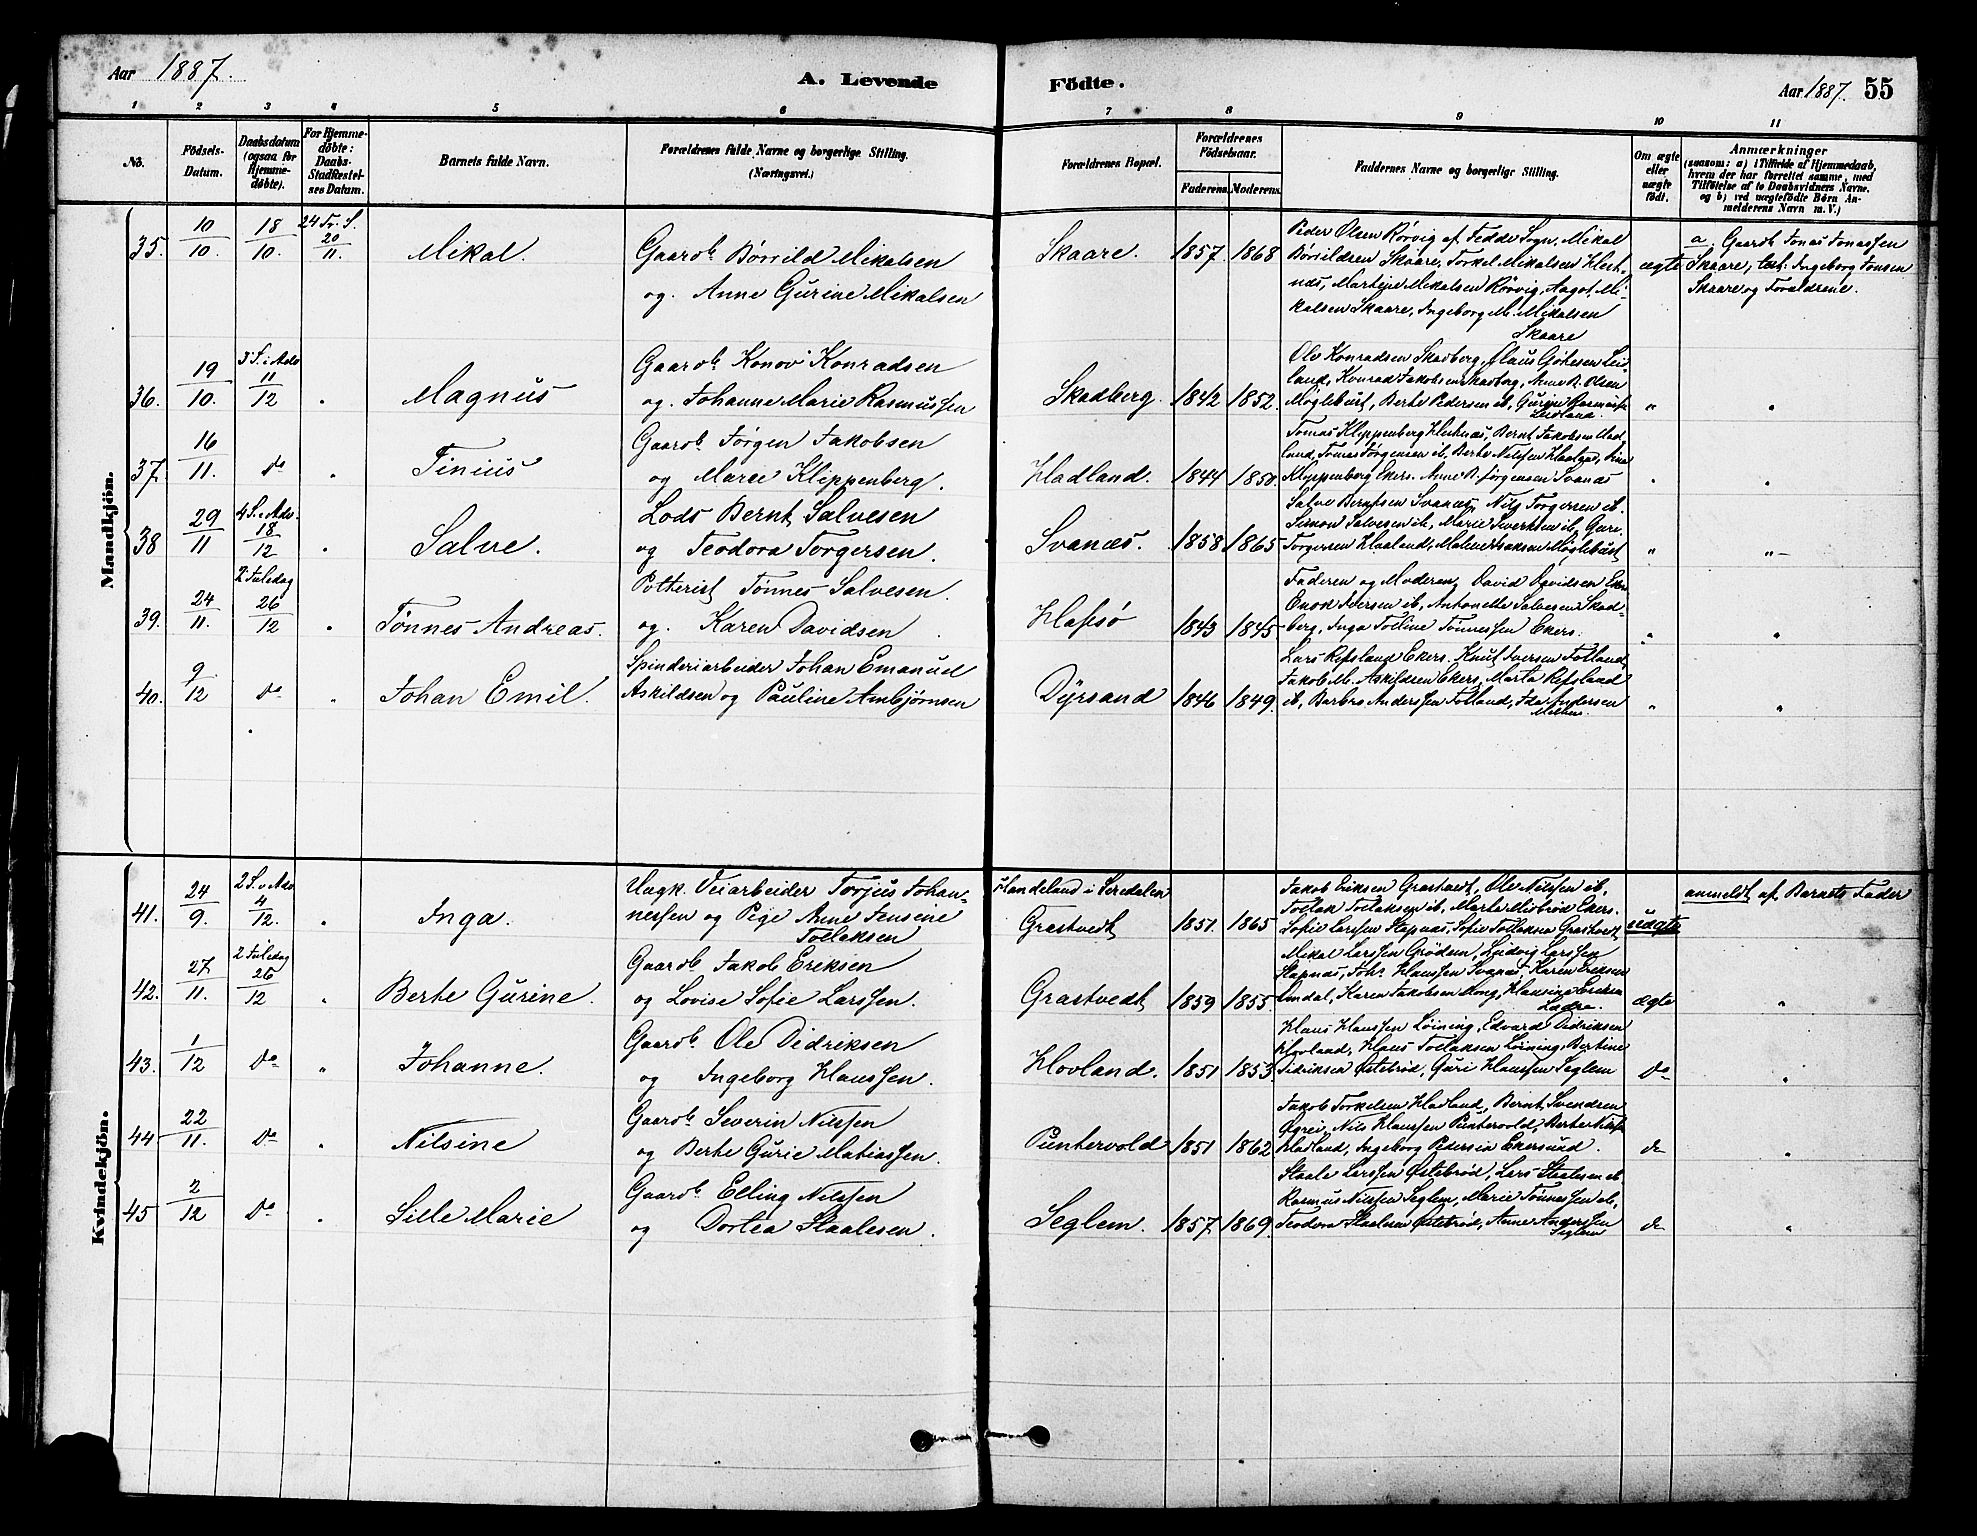 Aar 1887. A. Levende Födte. Aar 1887. 55
1 2 3 4 5 6 7 8 9 10 11
No. Födsels-Datum. Daabsdatum (ogsaa for Hjemmedöbte). For Hjemmedöbte: Daabs-Stadfæstelses Datum. Barnets fulde Navn. Forældrenes fulde Navne og borgerlige Stilling. (Næringsvei.) Forældrenes Bopæl. Forældrenes Födselsaar. Faderens. Moderens. Faddernes Navne og borgerlige Stilling. Om ægte eller uægte födt. Anmærkninger (saasom: a) i Tilfælde af Hjemmedaab, hvem der har forrettet samme, med Tilföielse af to Daabsvidners Navne, og b) ved uægtefödte Børn Anmelderens Navn m. V.)
Mandkjön.
35. 10/10. 18/10. 24 Tr. S. 20/11. Mikal. Gaardb. Børrild Mikalsen
og. Anne Gurine Mikalsen
Skaare. 1857 1868
Peder Olsen Rörvig af Fedde Sogn, Mikal
Børrildsen Skaare, Torkel Mikalsen Hest-
næs, Martine Mikalsen Rörvig, Aagot Mi-
kalsen Skaare, Ingeborg M. Mikalsen
Skaare
ægte
a. Gaardb. Jonas Jonassen
Skaare, test: Ingeborg Jonsen
Skaare og Forældrene.
36. 19/10. 3 S. i Adv 11/12 " Magnus Gaardb. Konov Konradsen
og. Johanne Marie Rasmussen
Skadberg. 1842 1852.
Ole Konradsen Skadberg, Claus Gjörsen Lei-
land, Konrad Jakobsen Skadberg, Anne R. Olsen
Möglebust, Berte Pedersen ib, Gurine Rasmussen
Leidland.
" "
37. 16/11. do " Tinius Gaardb. Jörgen Jakobsen
og Maree Klippenberg.
Hadland. 1844 1850.
Tomas Klippenberg Hestnæs, Bernt Jakobsen Had-
land, Tomas Jörgensen ib, Berte Nilssen Haaland,
Klippenberg Ekers. Anne B. Jörgensen Svanæs
" "
38 29/11 4 S. i Adv. 18/12 " Salve. Lods Bernt Salvesen
og Teodora Torgersen.
Svanæs. 1858 1865
Salve Berntsen Svanæs, Nils Torgersen ib.
Simon Salvesen ib, Marie Sivertsen ib, Guri
Torgersen Haaland, Malene Isaksen Möglebust
" "
39. 24/11. 2 Juledag 26/12 " Tønnes Andreas. Potterist Tønnes Salvesen.
og. Karen Davidsen.
Hafsö 1843 1845.
Faderen og Moderen, David Davidsen Ekers
Enok Iversen ib, Antonette Salvesen Skad-
berg, Inga Toline Tönnessen Ekers.
" "
40. 9/12 do " Johan Emil. Spinderiarbeider Johan Emanuel
Askildsen og Pauline Ambjørnsen
Dyrsand 1846 1849.
Lars Refsland Ekers. Knut Iversen Fotland,
Jakob M. Askildsen Ekers, Marta Refsland
ib, Barbro Anderssen Fotland, Ida Andersen
" "
Kvindekjön.
41. 24/9. 2 S. i Adv 4/12. " Inga. Ungk. Veiarbeider Torjus Johan-
nessen og Pige Anne Jensine
Tollaksen
Handeland i Siredalen
Grastvedt 1851. 1865
Jakob Eriksen Grastvedt, Ole Nilssen ib,
Tollak Tollaksen ib, Marta Midbrød Ekers.
Sofie Larssen Hapnæs, Sofie Tollaksen Grastvedt
uægte
anmeldt af Barnets Fader
42. 27/11. 2 Juledag 26/12 " Berte Gurine. Gaardb. Jakob Eriksen
og Lovise Sofie Larssen.
Grastvedt 1859 1855.
Mikal Larssen Grödem, Ludvig Larssen
Hapnæs, Johs. Claussen Svanæs, Karen Eriksen
Omdal, Karen Jakobsen Mong,
ægte "
43. 1/12 do " Johanne. Gaardb. Ole Didriksen
og Ingeborg Klaussen.
Hovland. 1851 1853.
Klaus Klaussen Löining, Edvard Didriksen
Hovland, Klaus Tollaksen Löining, Bertine
Didriksen Østebrød, Guri Klaussen Seglem
do "
44. 22/11. do " Nilsine Gaardb. Severin Nilssen
og Berte Gurie Matiassen.
Puntervold 1851 1862
Jakob Torkelsen Hadland, Bernt Svendsen
Øgrei, Nils Klaussen Puntervold, Berte Nilsen
Hadland, Ingeborg Pedersen Ekersund.
do "
45 2/12 do " Sille Marie Gaardb. Elling Nilssen
og Dortea Staalesen.
Seglem. 1857 1869.
Staale Larssen Østebrød, Lars Staalesen ib
Rasmus Nilssen Seglem, Marie Tönnessen ib,
Teodora Staalesen Østebrød, Anne Anderssen
Seglem
do "